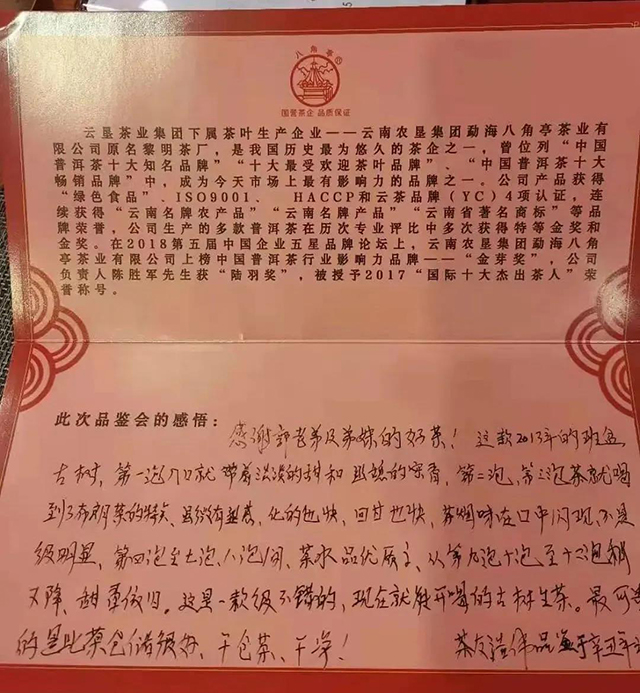 八角亭®
国营茶企 品质保证
云垦茶业集团下属茶叶生产企业——云南农垦集团勐海八角亭茶业有
限公司原名黎明茶厂，是我国历史最为悠久的茶企之一，曾位列“中国
普洱茶十大知名品牌”“十大最受欢迎茶叶品牌”、“中国普洱茶十大
畅销品牌”中，成为今天市场上最有影响力的品牌之一。公司产品获得
“绿色食品”、ISO9001、 HACCP和云茶品牌（YC）4项认证，连
续获得“云南名牌农产品”“云南名牌产品”“云南省著名商标”等品
牌荣誉，公司生产的多款普洱茶在历次专业评比中多次获得特等金奖和
金奖。在2018第五届中国企业五星品牌论坛上，云南农垦集团勐海八角
亭茶业有限公司上榜中国普洱茶行业影响力品牌——“金芽奖”，公司
负责人陈胜军先生获“陆羽奖”，被授予2017“国际十大杰出茶人”荣
誉称号。
此次品鉴会的感悟：
感谢郭老弟及弟妹的好茶！这款2013年的班
古树，第一泡入口就带着淡淡的甜和明显的蜜香，第二泡、第三泡茶就喝
到了布朗茶的特点，虽微有苦感，化的也快，回甘也快，若烟味在口中闪现，不是
级明显，第四泡至七泡、八泡间，茶水品优厚，从第九泡十泡至十二泡稍
又降，甜柔依旧。这是一款级不错的，现在就能开喝的古树生茶。最可
的是此茶仓储级好，干仓茶、干净！
茶友 品鉴于辛丑年